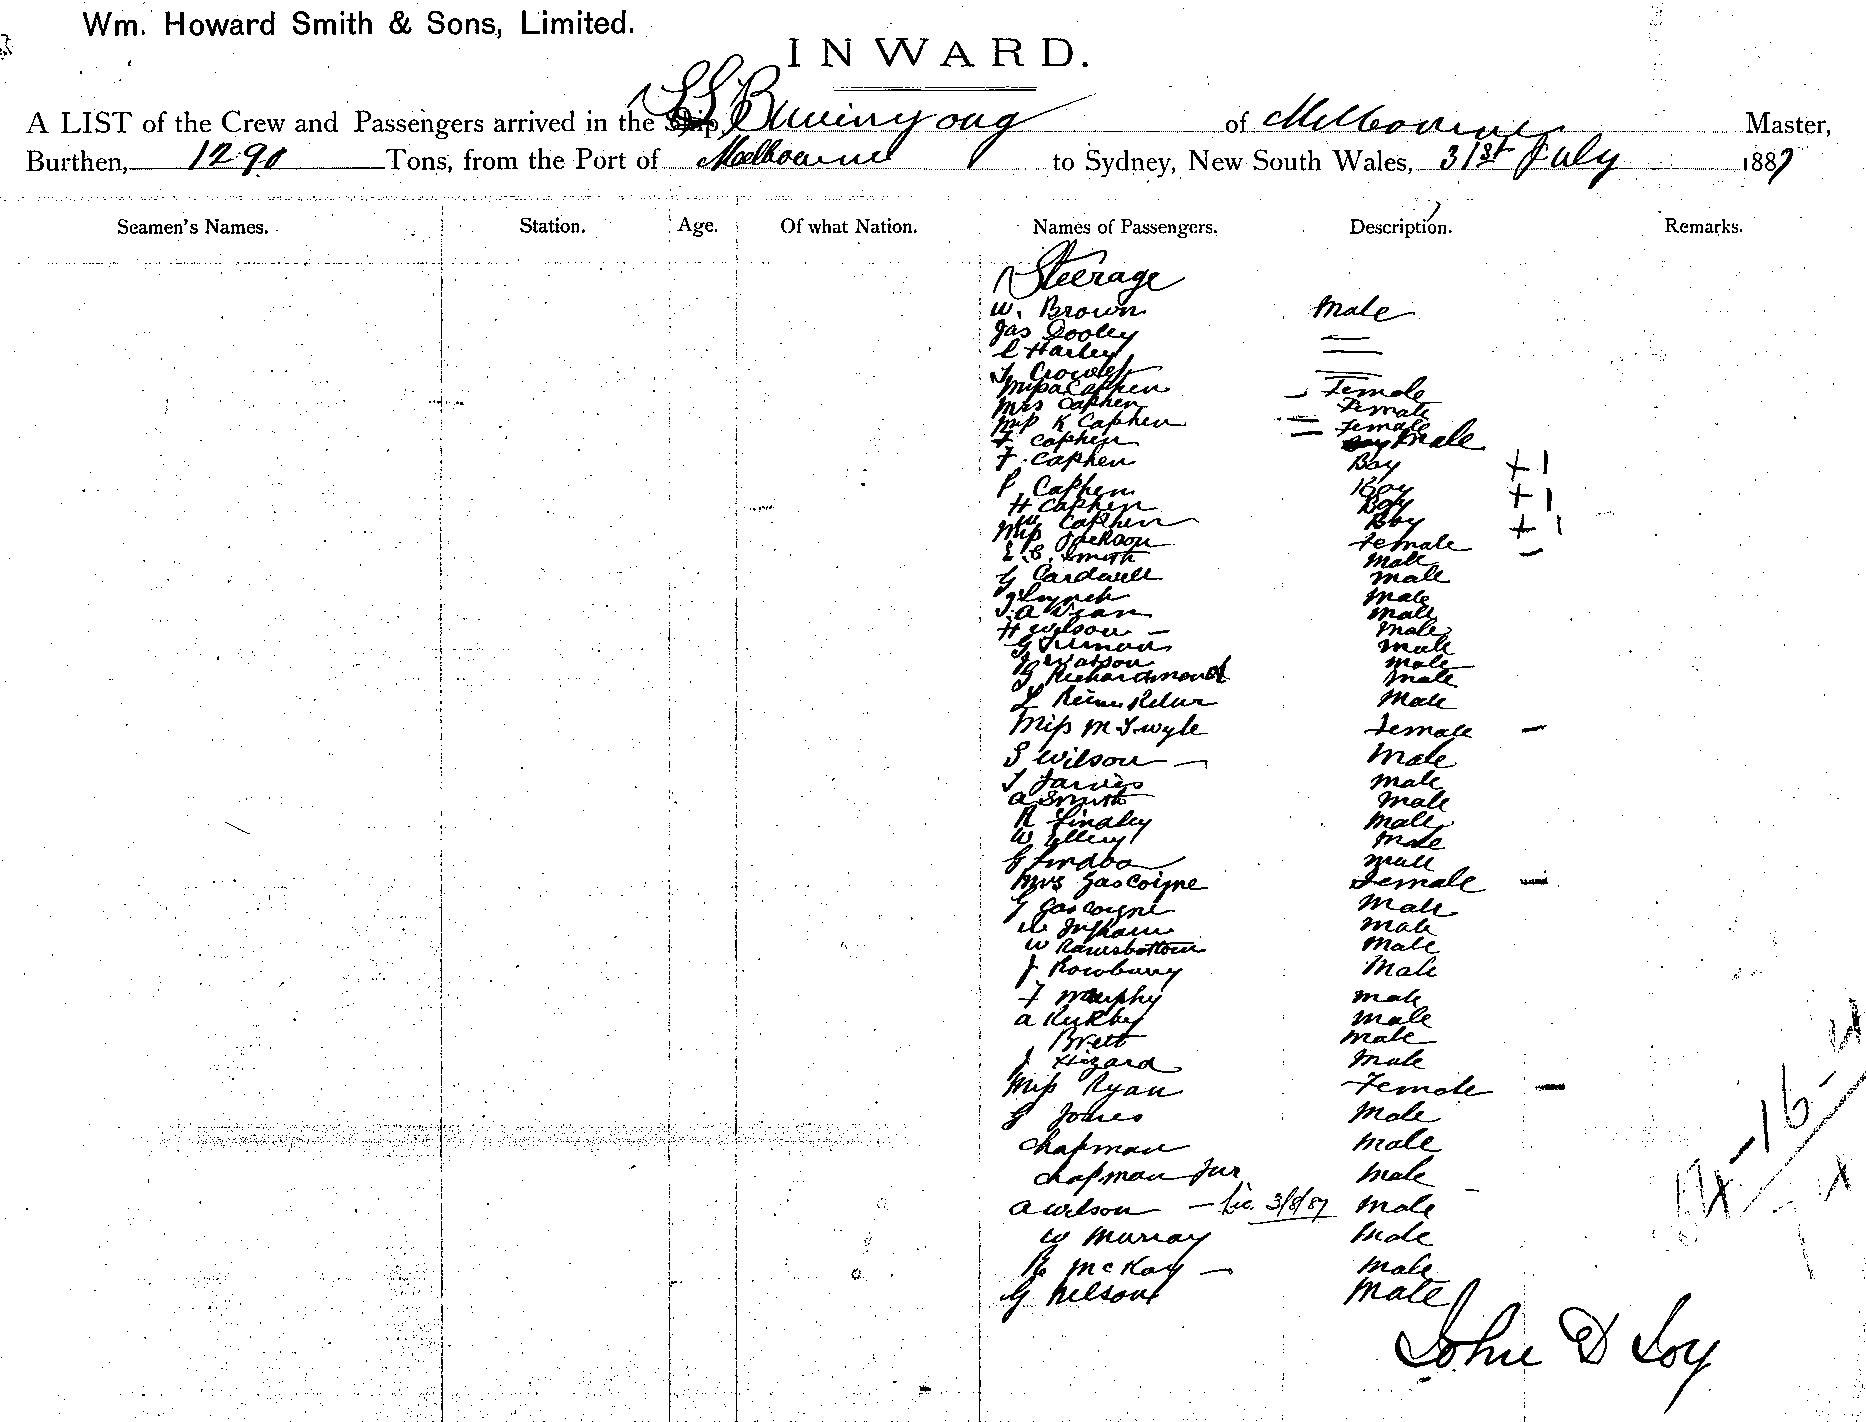 Wm. Howard Smith & Sons, Limited.
INWARD.
A LIST of the Crew and Passengers arrived in the Ship SS Buninyong of Melbourne Master,
Burthen, 1290 Tons, from the Port of Melbourne to Sydney, New South Wales, 31st July 1887
Seamen's Names. Station. Age. Of what Nation. Names of Passengers. Description. Remarks.
Steerage
W. Brown Male
Jas Dooley
C Harley
T Crowley
Miss a Caphen Female
Mrs Caphen Female
Miss K Caphen Female
F Caphen Male
F. Caphen Boy + 1
P Caphen Boy + 1
H Caphen Boy
Wm Caphen Boy + 1
Miss Jackson Female
E. C. Smith Male
G Cardwell Male
J Lynch Male
T. A Male
H Wilson Male
G Male
J Watson Male
G Richardmond Male
L Male
Miss M Twyle Female
S Wilson Male
T Jarvis Male
a Smith Male
R Findley Male
W Ellery Male
G Male
Mrs Gascoigne Female
G Gascoigne Male
Ingham Male
W Ramsbottom Male
J Rowbury Male
F Murphy Male
a Kirkby Male
Brett Male
J Hizard Male
Miss Ryan Female
G Jones Male
Chapman Male
Chapman Jur Male
A Wilson 3/8/87 Male
W Murray Male
R McKay Male
G Nelson Male
John D Loy